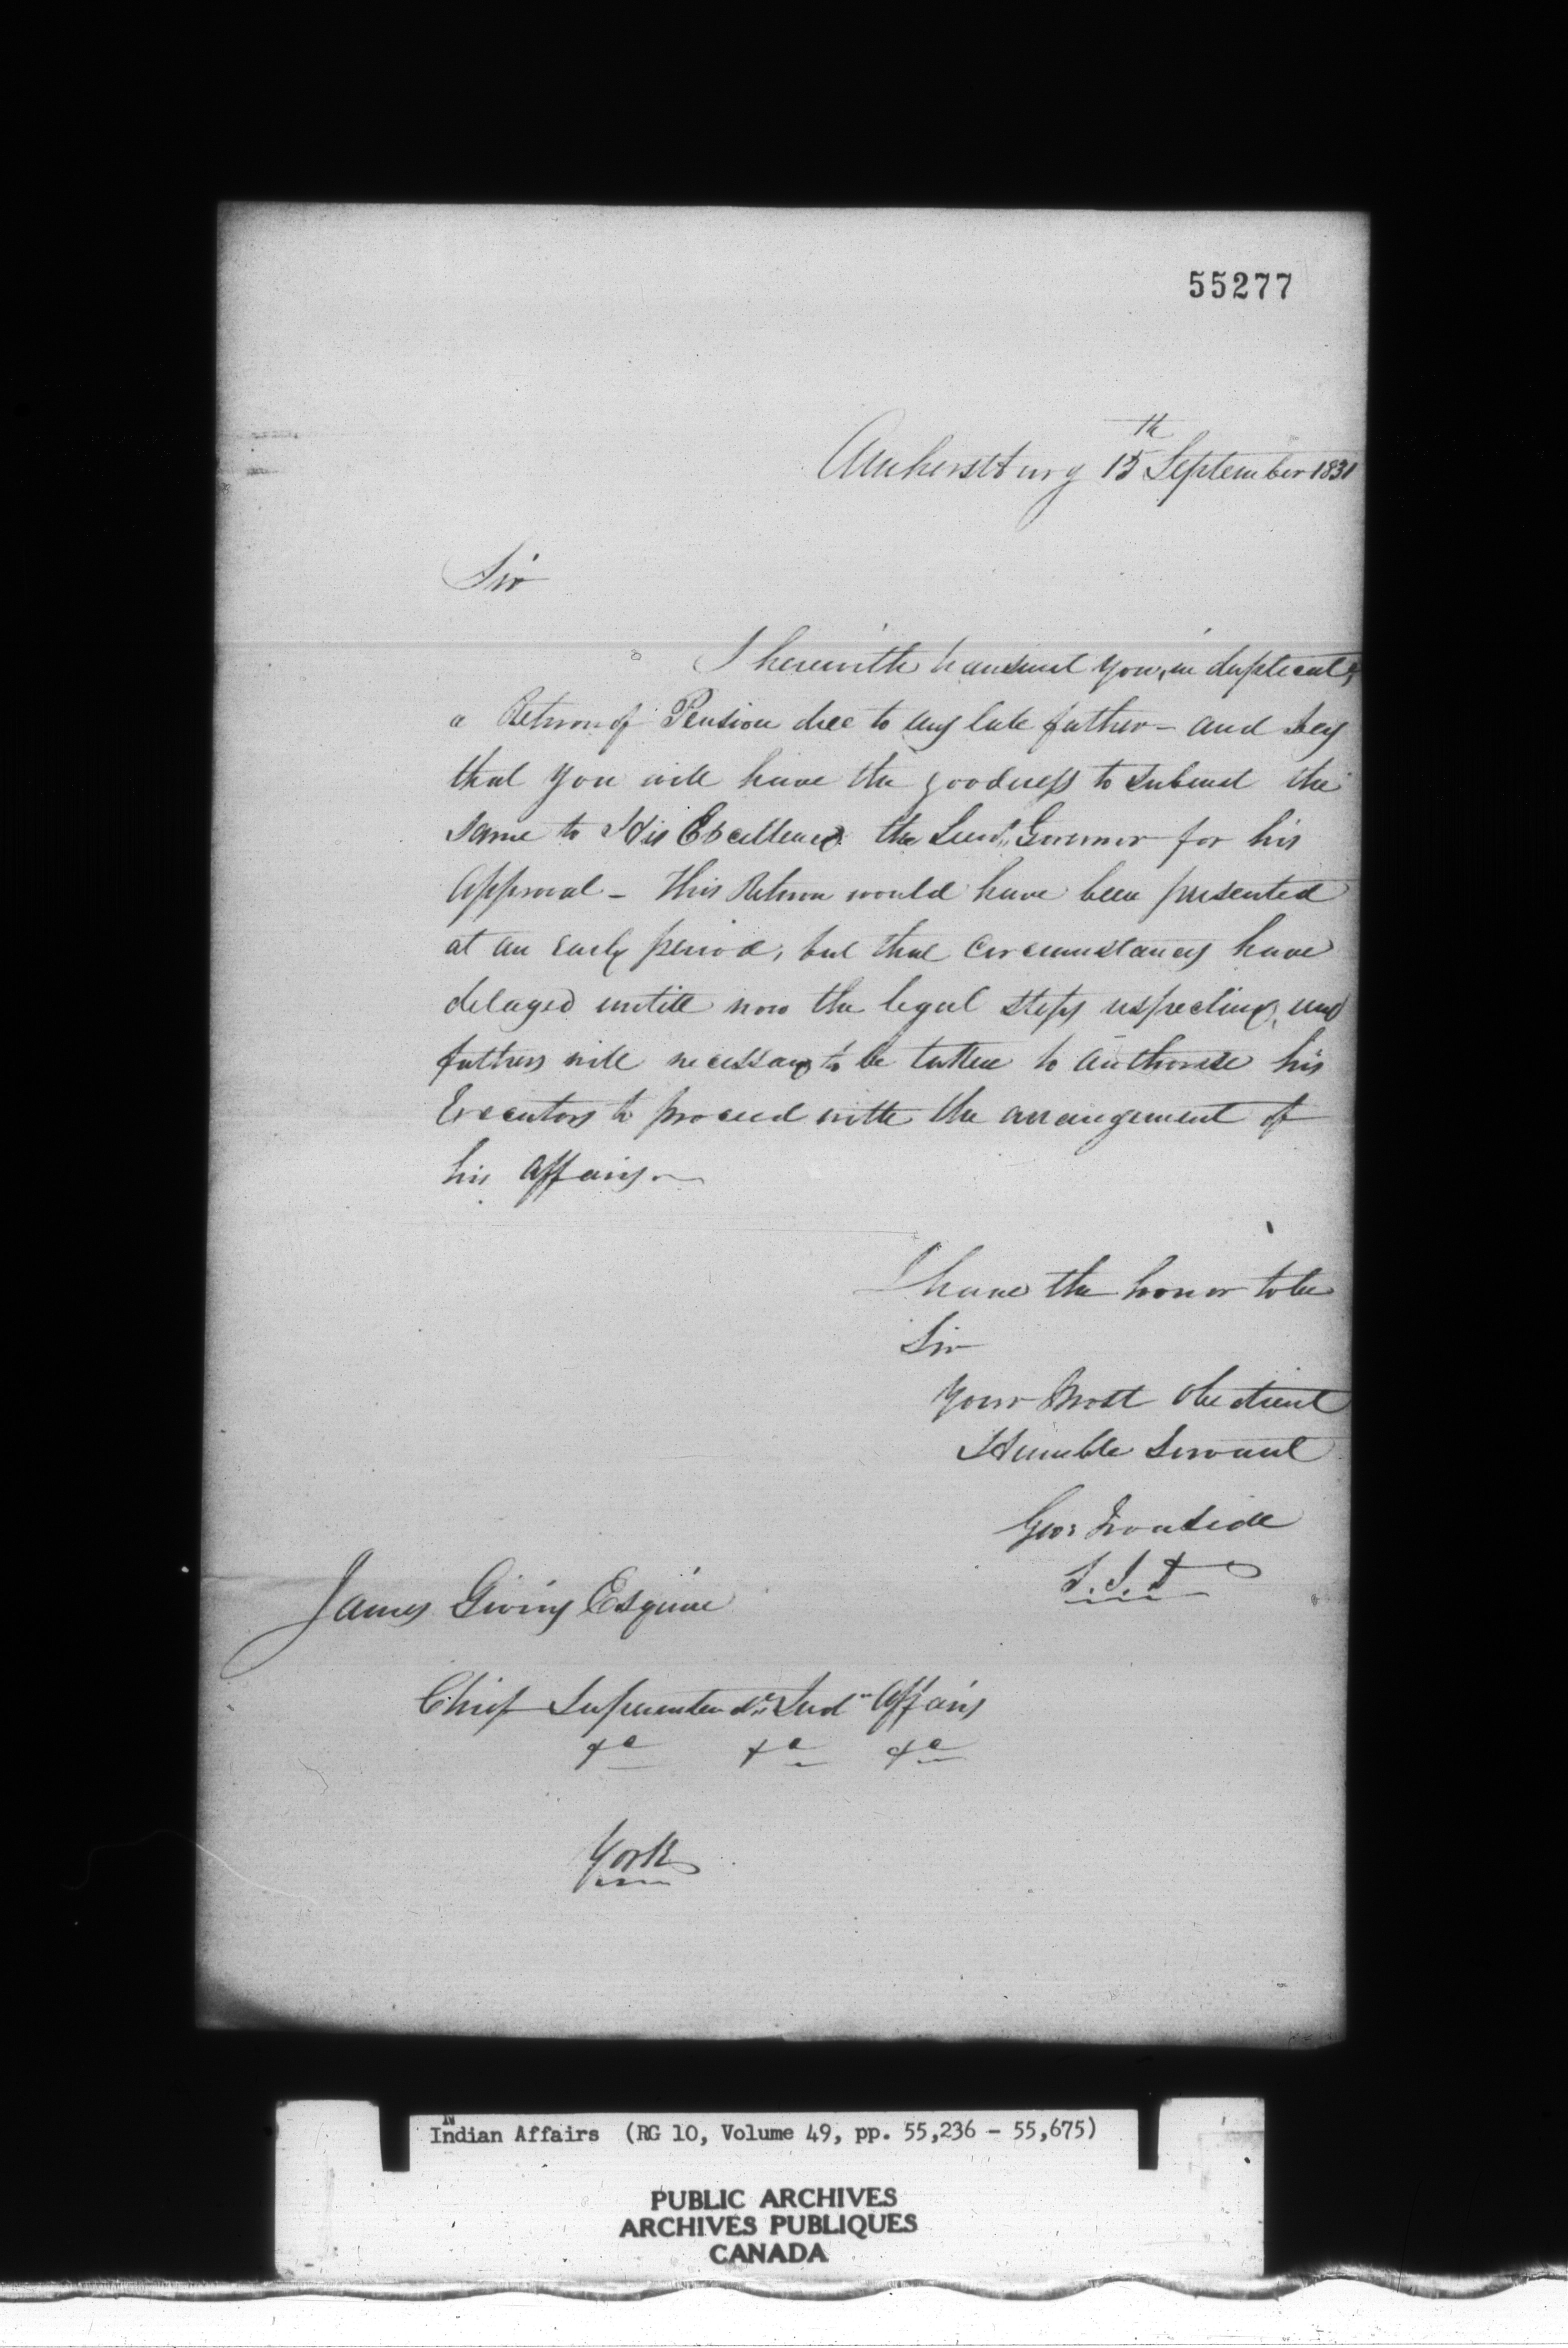 55277
Amherstburg 15th September 1831
Sir
I herewith transmit you, in duplicate,
a Return of Pension due to my late father - and beg
that you will have the goodness to submit the
same to His Excellency the Lieut. Governor for his
Approval - This Return would have been presented
at an early period, but that circumstances have
delayed untill now the legal steps respecting my
fathers will necessary to be taken to authorise his
Executors to proceed with the arrangement of
his Affairs.
I have the honor to be
Sir
Your Most Obedient
Humble Servant
Geo: Ironside
S.I.A
James Givins Esquire
Chief Superintendt. Ind" Affairs
&c &c &c
York
Indian Affairs (RG 10, Volume 49, pp. 55,236 - 55,675)
PUBLIC ARCHIVES
ARCHIVES PUBLIQUES
CANADA